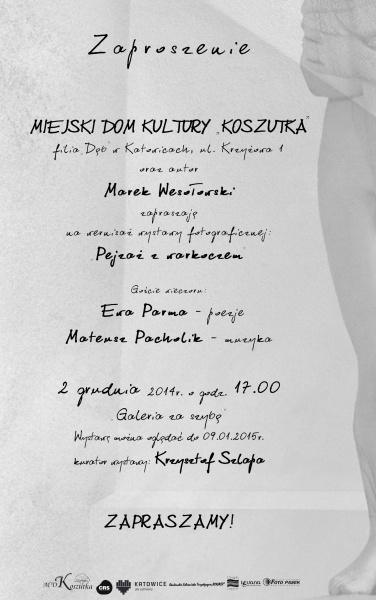 Zaproszenie
MIEJSKI DOM KULTURY „KOSZUTKA"
filia „Dąb" w Katowicach, ul. Krzyżowa 1
oraz autor
Marek Wesołowski
zapraszają
na wernisaż wystawy fotograficznej:
„Pejzaż z warkoczem"
Goście wieczoru:
Ewa Parma - poezje
Mateusz Pacholik - muzyka
2 grudnia 2014r. o godz. 17.00
„Galeria za szybą"
Wystawę można oglądać do 09.01.2015r.
kurator wystawy: Krzysztof Szlapa
ZAPRASZAMY!
MDK Koszutka
KATOWICE
FOTO PAREK